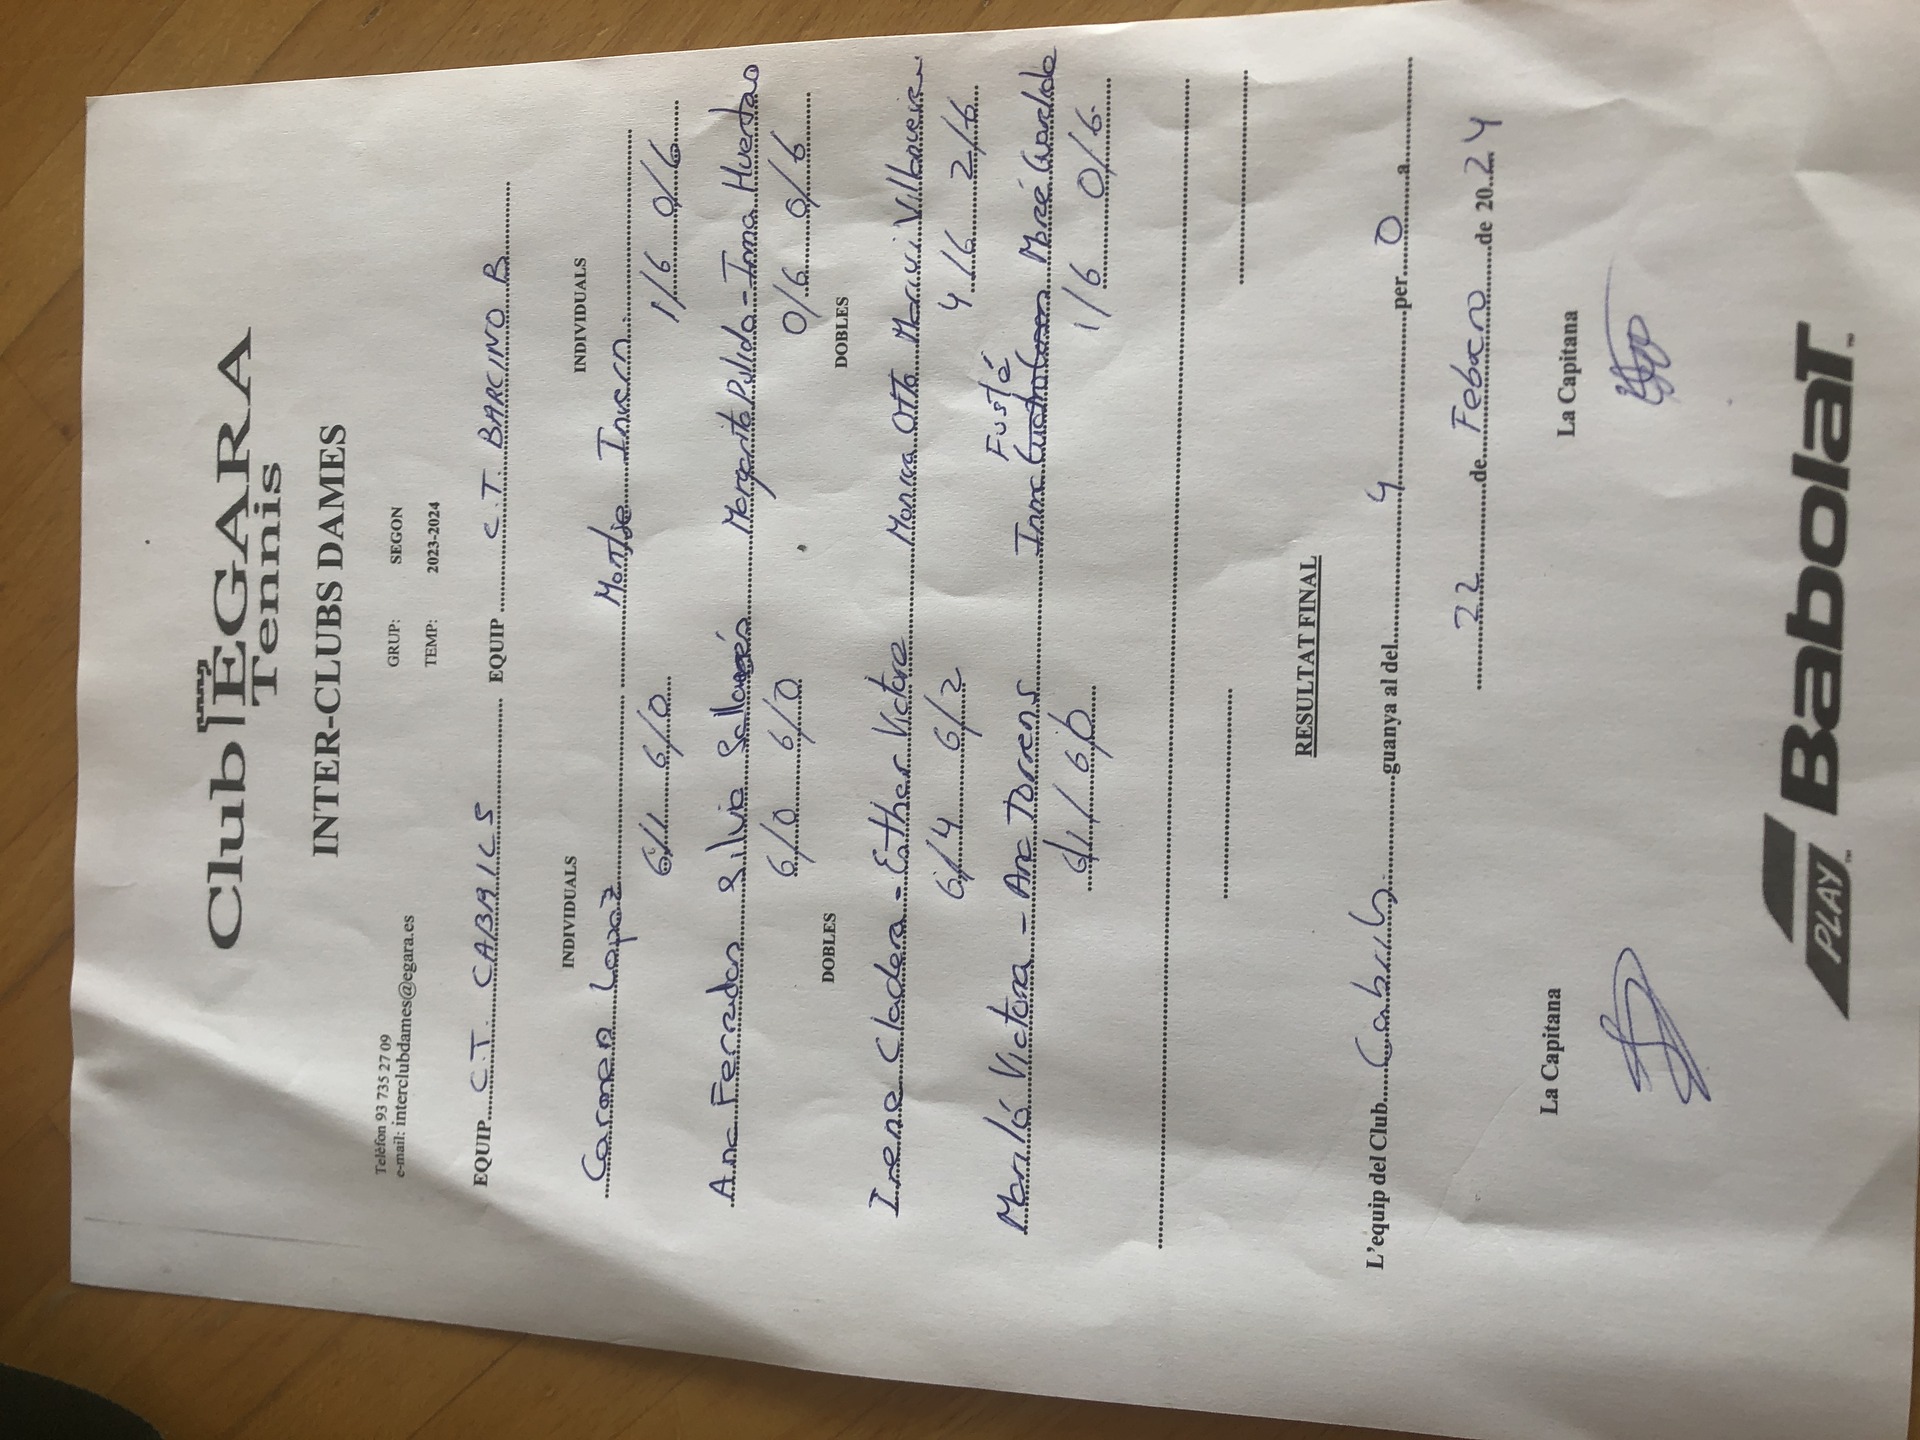 Club EGARA
Tennis
INTER-CLUBS DAMES
Telèfon 93 735 27 09 GRUP: SEGON
e-mail: interclubdames@egara.es TEMP: 2023-2024
EQUIP C.T. CABRILS EQUIP C.T. BARCINO B
INDIVIDUALS INDIVIDUALS
Carmen Lopez Montse Invern
6/1 6/0 1/6 0/6
Ana Ferradon Silvia Margarita Pulido - Inma Huertas
6/0 6/0 0/6 0/6
DOBLES DOBLES
Irene Cladera - Esther Victoria Monica Otto Maricui Villanueva
6/4 6/2 4/6 2/6
Fusté
Mariló Victoria - Ana Torrens Inma Mercé Guardiola
6/1/ 6/0 1/6 0/6
RESULTAT FINAL
L'equip del Club Cabrils guanya al del 4 per 0 a
22 de Febrero de 2024
La Capitana La Capitana
PLAY Babolat